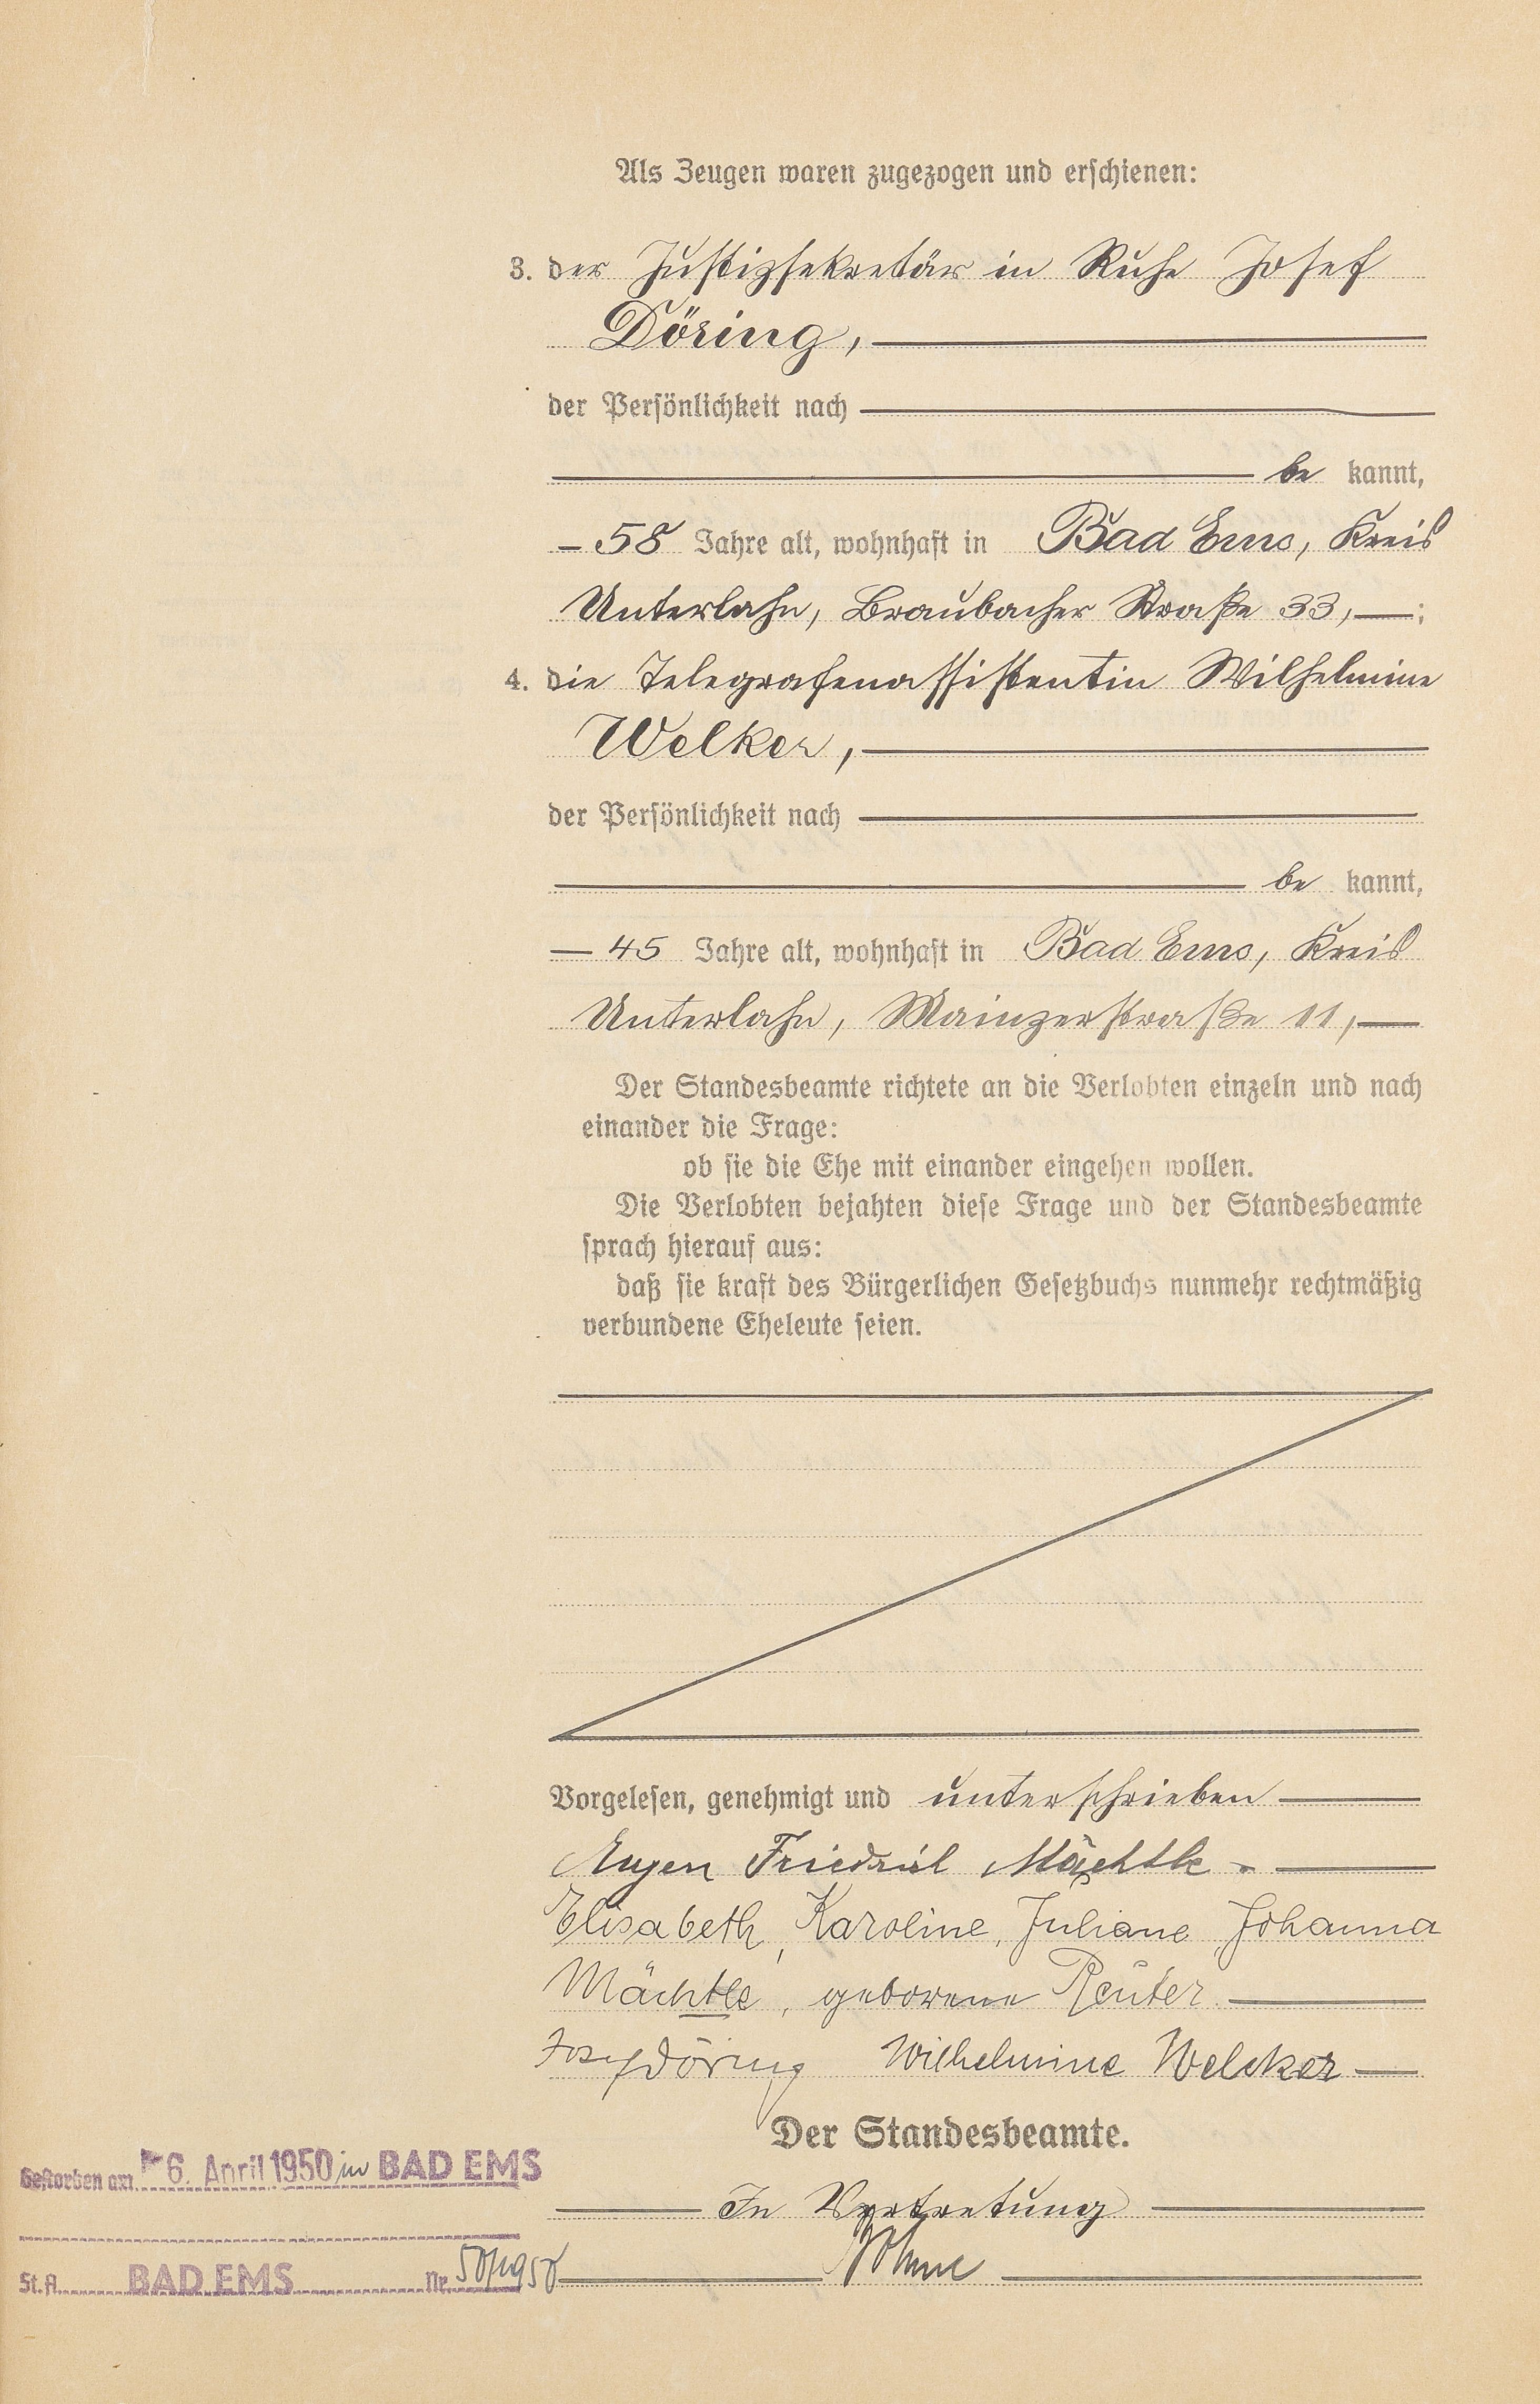 Als Zeugen waren zugezogen und erschienen:
3. der Justizsekretär in Ruhe Josef
Döring,
der Persönlichkeit nach
be kannt,
58 Jahre alt, wohnhaft in Bad Ems, Kreis
Unterlahn, Braubacher Straße 33, ;
4. die Telegrafenassistentin Wilhelmine
Welker,
der Persönlichkeit nach
be kannt,
45 Jahre alt, wohnhaft in Bad Ems, Kreis
Unterlahn, Mainzerstraße 11,
Der Standesbeamte richtete an die Verlobten einzeln und nach
einander die Frage:
ob sie die Ehe mit einander eingehen wollen.
Die Verlobten bejahten diese Frage und der Standesbeamte
sprach hierauf aus:
daß sie kraft des Bürgerlichen Gesetzbuchs nunmehr rechtmäßig
verbundene Eheleute seien.
Vorgelesen, genehmigt und unterschrieben
Eugen Friedrich Mächtle.
Elisabeth, Karoline, Juliane, Johanna
Mächtle, geborene Reuter.
Josef Döring Wilhelmine Welcker
Der Standesbeamte.
In Vertretung
Gestorben am 6. April 1950 in BAD EMS
St. A. BAD EMS Nr. 50/1950